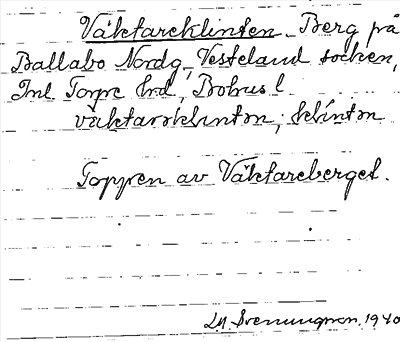 Väktareklinten - Berg på
Ballabo Nordg, Vesteland socken,
Inl. Torpe hrd, Bohus l
väktarəklintən, klíntən
Toppen av Väktareberget.
1940